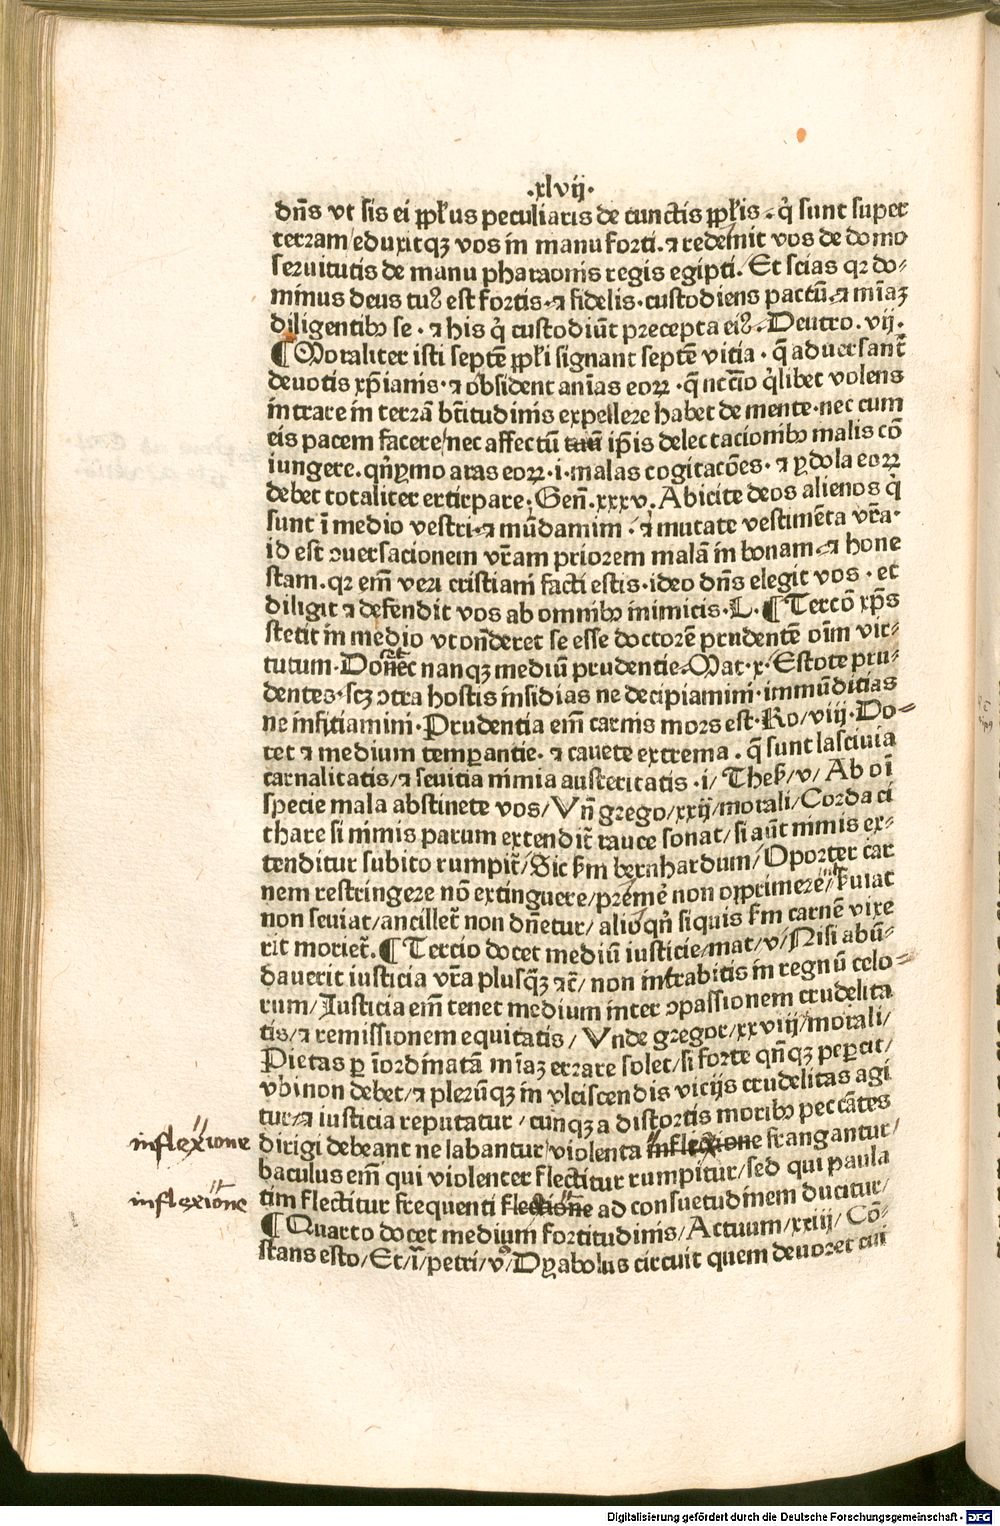 .xlvij.
dn̄s vt sis ei ꝓpľus peculiaris de cunctis ꝓpľis. q̇ sunt super
terram/eduxitqꝫ vos in manu forti. ⁊ redemit vos de domo
seruitutis de manu pharaonis regis egipti. Et scias qꝛ do⸗
minus deus tuꝰ est fortis. ⁊ fidelis. custodiens pactū. ⁊ mīaꝫ
diligentibꝫ se. ⁊ his q̇ custodiūt precepta eiꝰ. Deutro. vij.
¶Moraliter isti septē ꝓpľi signant septē vitia. q̄ aduersant᷑
deuotis xp̄ianis. ⁊ obsident aīas eoꝝ. q̄ nccīo q̇libet volens
intrare in terrā btītudinis expellere habet de mente. nec cum
eis pacem facere/nec affectū ip̄is delectacionibꝫ malis cō
iungere. qn̄ymo aras eoꝝ. i. malas cogitacōes. ⁊ ydola eoꝝ
debet totaliter extirpare. Gen̄. xxxv. Abicite deos alienos q̇
sunt ī medio vestri. ⁊ mūdamini. ⁊ mutate vestimēta vr̄a.
id est ꝯuersacionem vr̄am priorem malā in bonam. ⁊ hone
stam. qꝛ em̄ veri cristiani facti estis. ideo dn̄s elegit vos. et
diligit ⁊ defendit vos ab omnibꝫ inimicis. L. ¶Tercō xp̄s
stetit in medio vt on̄deret se esse doctorē prudentē oīm vir⸗
tutum. Docet nanqꝫ mediū prudentie. Mat. x. Estote pru⸗
dentes. scꝫ ꝯtra hostis insidias ne decipiamini. immūditias
ne inficiamini. Prudentia em̄ carnis mors est. Ro/viij. Do⸗
cet ⁊ medium temꝑantie. ⁊ cauete extrema. q̄ sunt lasciuia
carnalitatis/⁊ seuitia nimia austeritatis. i/Thess/v/Ab oī
specie mala abstinete vos/Vn̄ grego/xxij/morali/Corda ci
thare si nimis parum extendit᷑ rauce sonat/si aūt nimis ex⸗
tenditur subito rumpit᷑/Sic ẜm bernhardum/Oportet car
nem restringere nō extinguere/premē non opprimere/ẜuiat
non seuiat/ancillet᷑ non dn̄etur/alioqn̄ siquis ẜm carnē vixe
rit moriet᷑. ¶Tercio docet mediū iusticie/mat/v/Nisi abū⸗
dauerit iusticia vr̄a plusq̄ꝫ ⁊c̄/non intrabitis in regnū celo⸗
rum/Iusticia em̄ tenet medium inter ꝯpassionem crudelita
tis/⁊ remissionem equitatis/Vnde gregor/xxviij/morali/
Pietas ꝑ īordinatā mīaꝫ errare solet/si forte qn̄qꝫ peꝑcit/
vbi non debet/⁊ plerūqꝫ in vlciscendis vicijs crudelitas agi
tur/⁊ iusticia reputatur/cunqꝫ a distortis moribꝫ peccātes
inflexione
dirigi debeant ne labantur/violenta inflexione frangantur/
baculus em̄ qui violenter flectitur rumpitur/sed qui paula
inflexiōne
tim flectitur frequenti flectiōne ad consuetudinem ducitur/
¶Quarto docet medium fortitudinis/Actuum/xxiij/Cō⸗
stans esto/Et/ī/petri/v/Dyabolus circuit quem deuoret cui
Digitalisierung gefördert durch die Deutsche Forschungsgemeinschaft - DFG